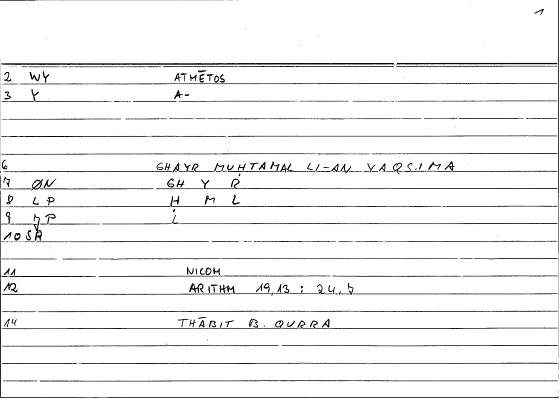 1
2 WY ATMĒTOS
3 Y A-
6 GHAYR MUḤTAMAL LI-AN YAQSIMA
7 ØN GH Y R
8 LP Ḥ M L
9 7P L
10 SR
11 NICOM
12 ARITHM 19,13 : 24,7
14 THĀBIT B. QURRA